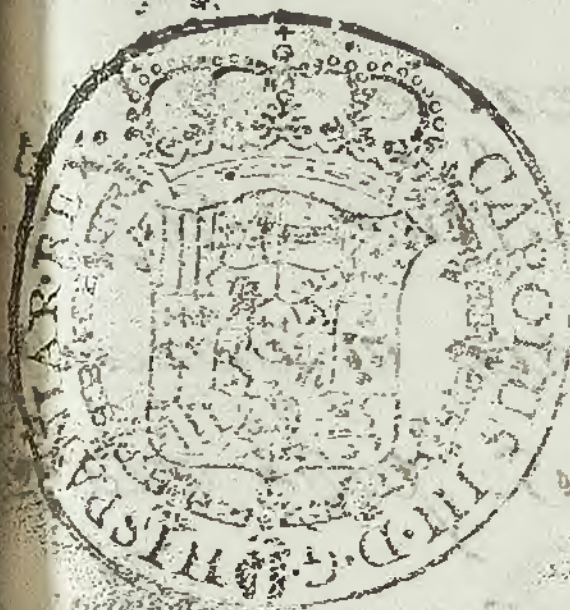 CAROLUS III·D·G·HISPANIAR·R